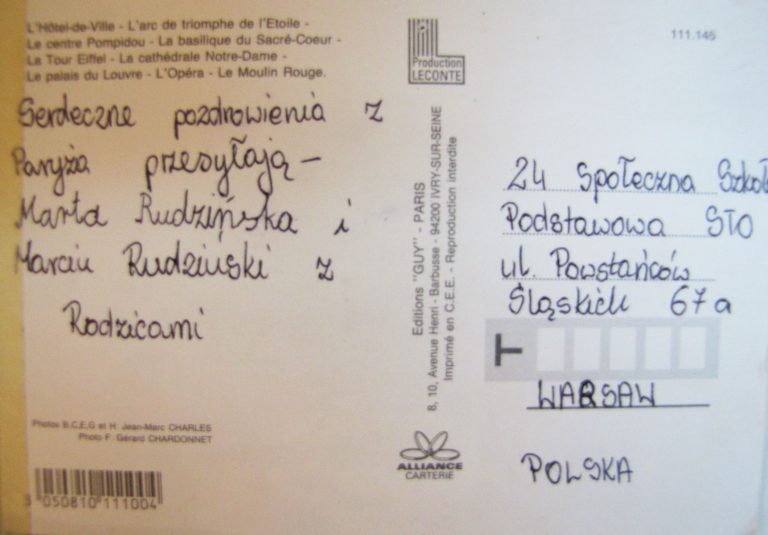 L'Hôtel-de-Ville - L'arc de triomphe de l'Etoile -
Le centre Pompidou - La basilique du Sacré-Coeur -
La Tour Eiffel - La cathédrale Notre-Dame -
Le palais du Louvre - L'Opéra - Le Moulin Rouge.
Serdeczne pozdrowienia z
Paryża przesyłają -
Marta Rudzińska i
Marcin Rudziński z
Rodzicami
Photos B,C,E,G et H: Jean-Marc CHARLES
Photo F: Gérard CHARDONNET
3 050810 111004
Production
LECONTE
Editions "GUY" - PARIS
8, 10, Avenue Henri - Barbusse - 94200 IVRY-SUR-SEINE
Imprimé en C.E.E. - Reproduction interdite
ALLIANCE
CARTERIE
111.145
24 Społeczna Szkoł
Podstawowa STO
ul. Powstańców
Śląskich 67a
T
WARSAW
POLSKA